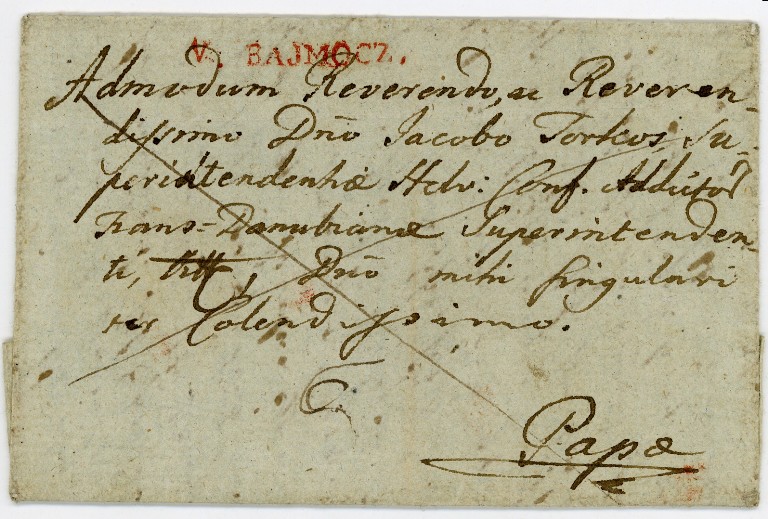 V. BAJMÓCZ.
Admodum Reverendo, ac Reveren-
dissimo Dno Jacobo Torkos Su-
perintendentiæ Helv: Conf. Addictor
Trans-Danubianæ Superintenden-
ti, titt, Dno mihi singulari
ter Colendissimo.
Papæ